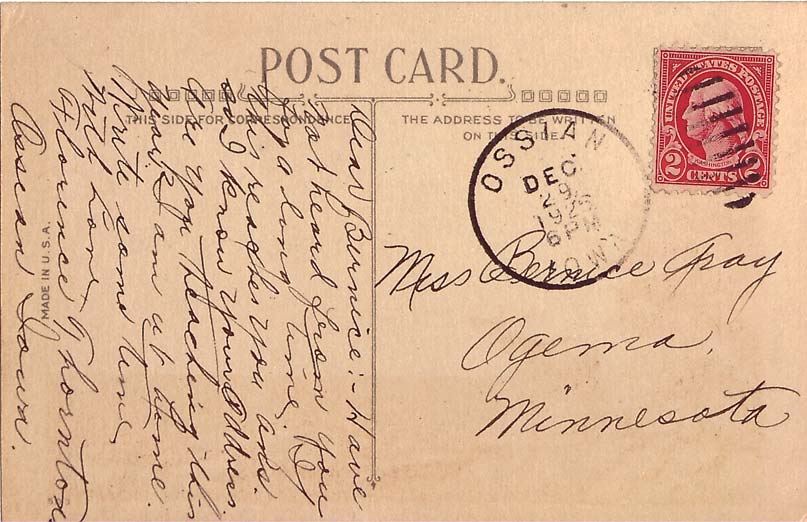 POST CARD.
THIS SIDE FOR CORRESPONDENCE
THE ADDRESS TO BE WRITTEN
ON THIS SIDE.
Dear Burnice:- Have
not heard from you
for a long time. If
this reaches you ans.
and I know your address
Are you teaching this
year. I am at home.
Write some time,
with love,
Florence Thornton
Ossian Iowa.
MADE IN U.S.A.
OSSIAN
DEC
29
6 PM
IOWA
UNITED STATES POSTAGE
WASHINGTON
2 CENTS 2
Miss Bernice Gray
Ogema,
Minnesota